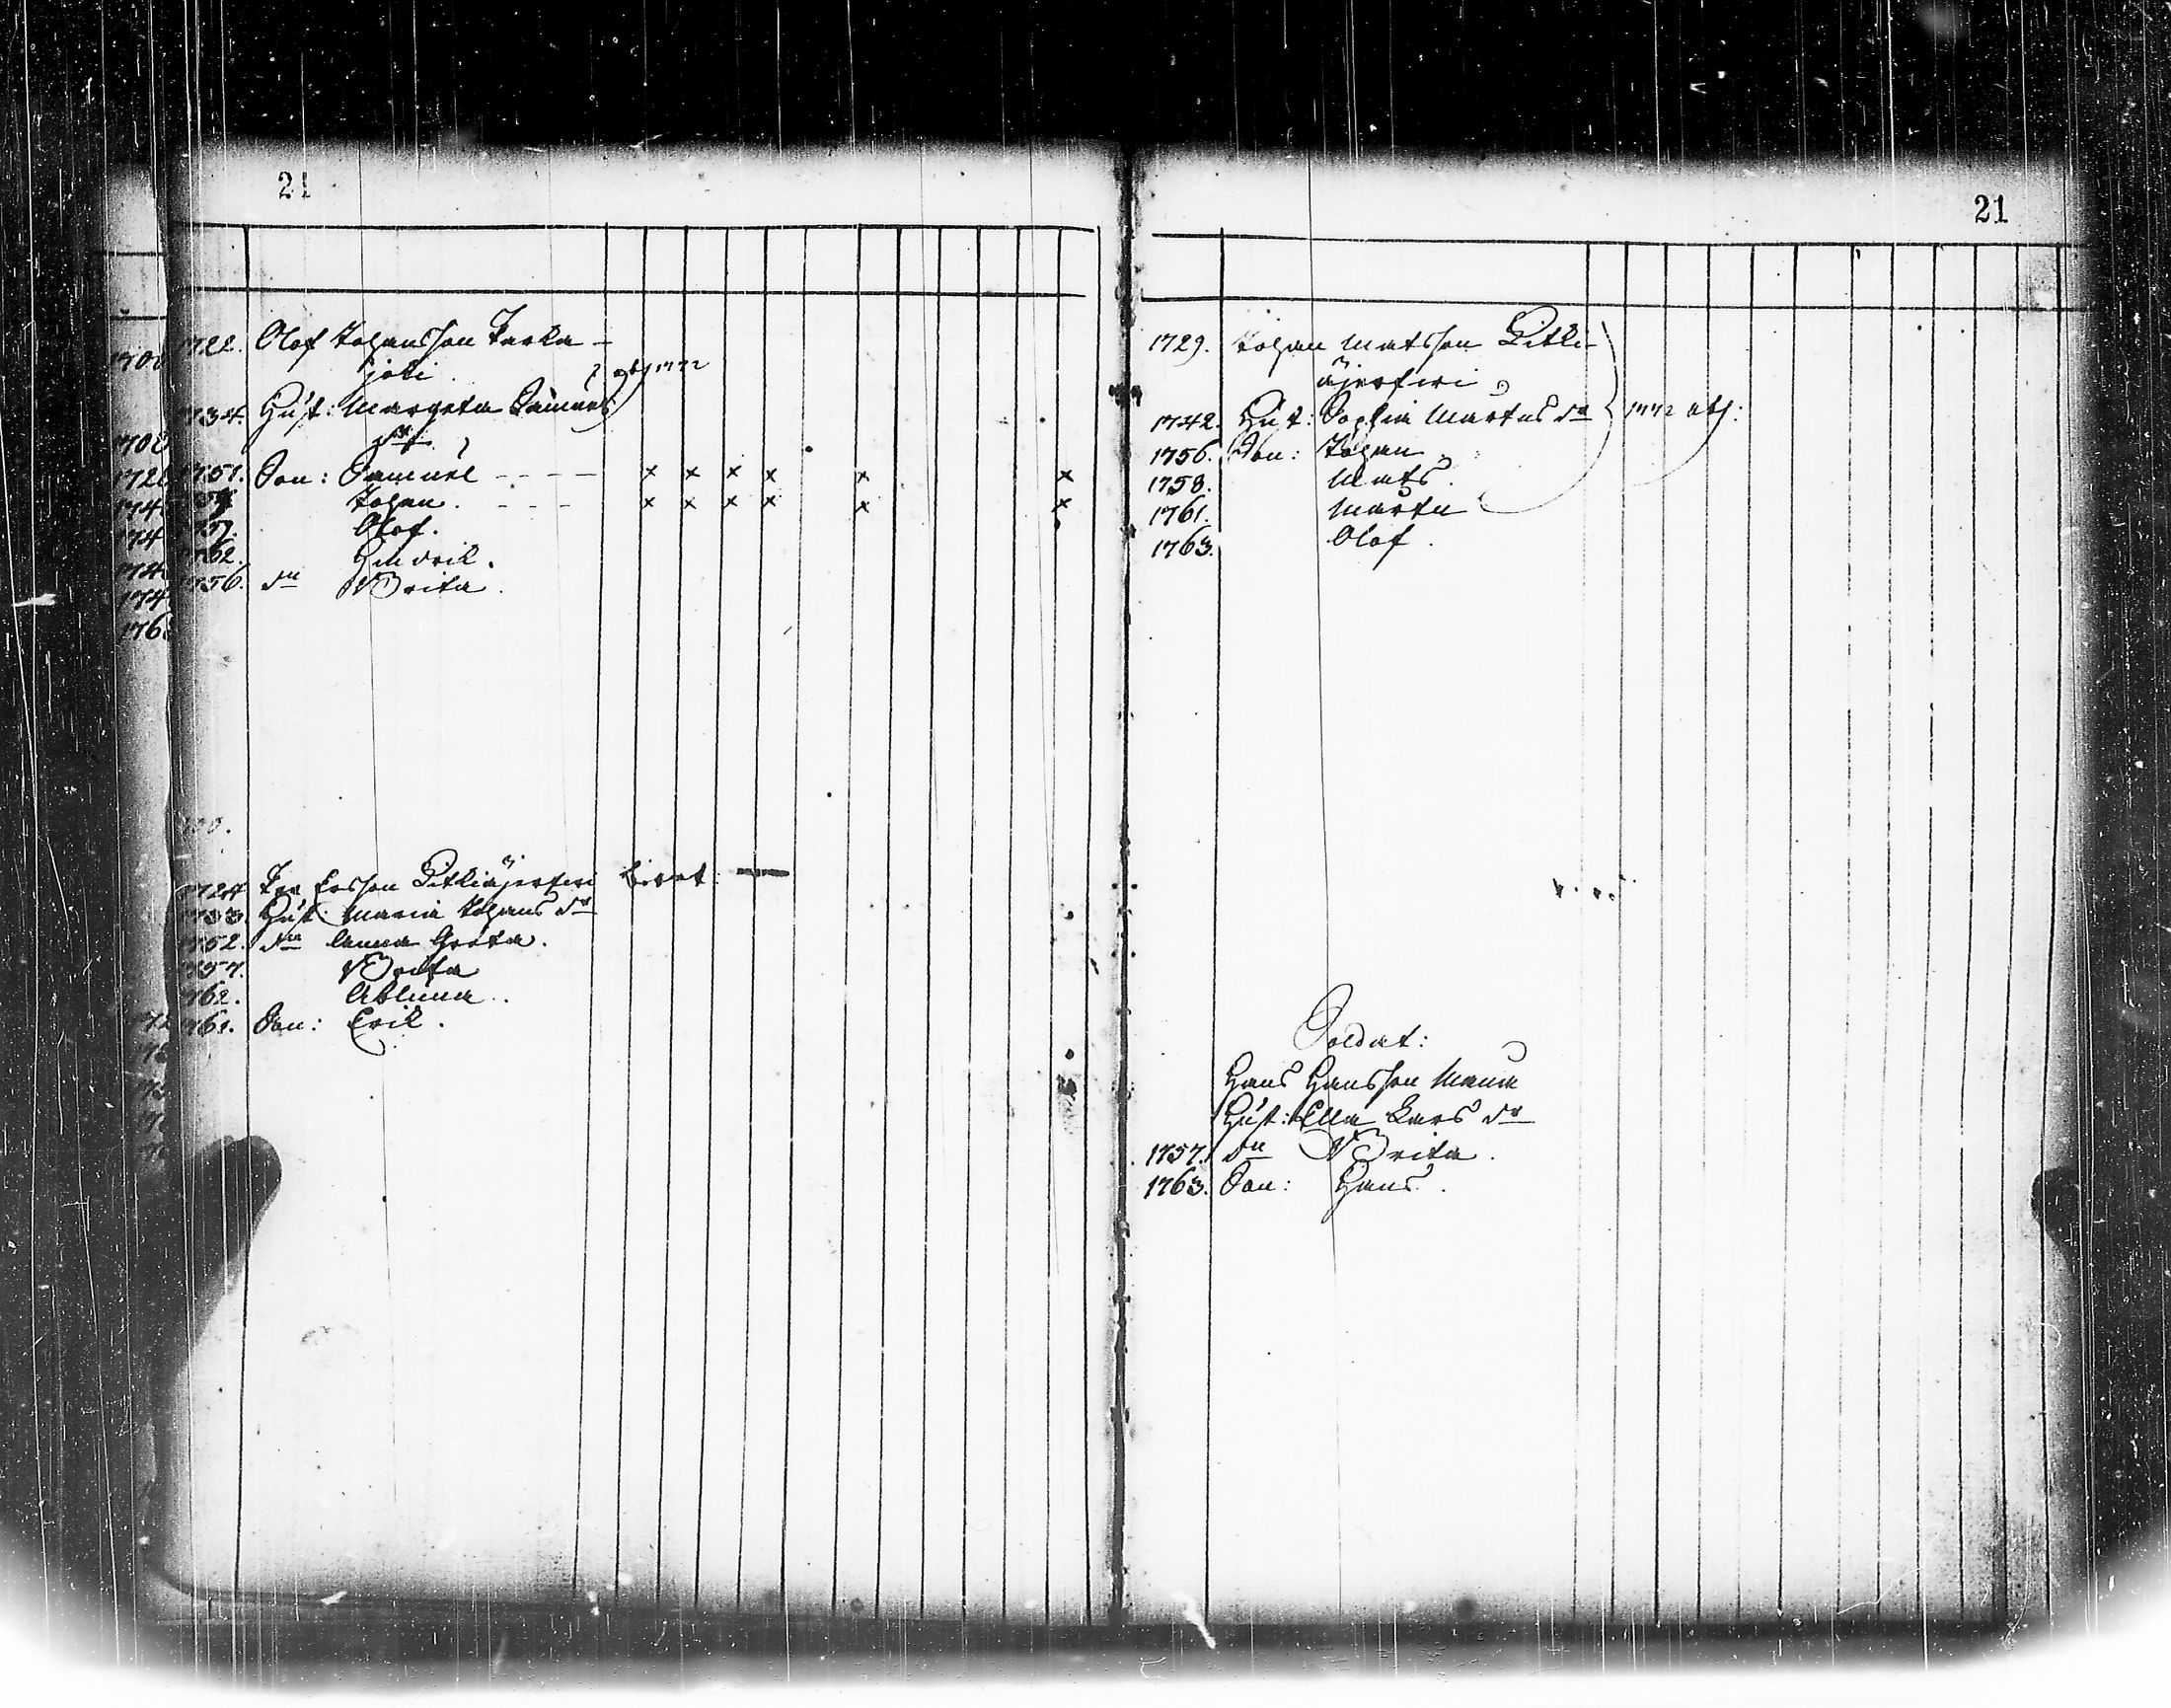 21
1722. Olof Johansson Tarka-
joki. abs 1772
1734. Hust: Margeta Samuels
dr
1751. Son: Samuel - - - - x x x x x x
Johan. - - - x x x x x x
1757. Olof.
1762. Hindrik.
1756. dr Brita.
1724 Per Ersson Pitkiäjerfwi
1733 Hust: Maria Johans dr
1752. dr Anna Greta.
1757. Brita
1762. Abluna.
1761. Son: Erik.
21
1729. Johan Matsson Pitki-
äjerfwi
1742. Hust: Sophia Martens dr 1772 abs:
1756. Son: Johan
1758. Mats.
1761. Marten
1763. Olof.
Soldat:
Hans Hansson
Hust: Ella Lars dr
1757. dr Brita.
1763. Son: Hans.